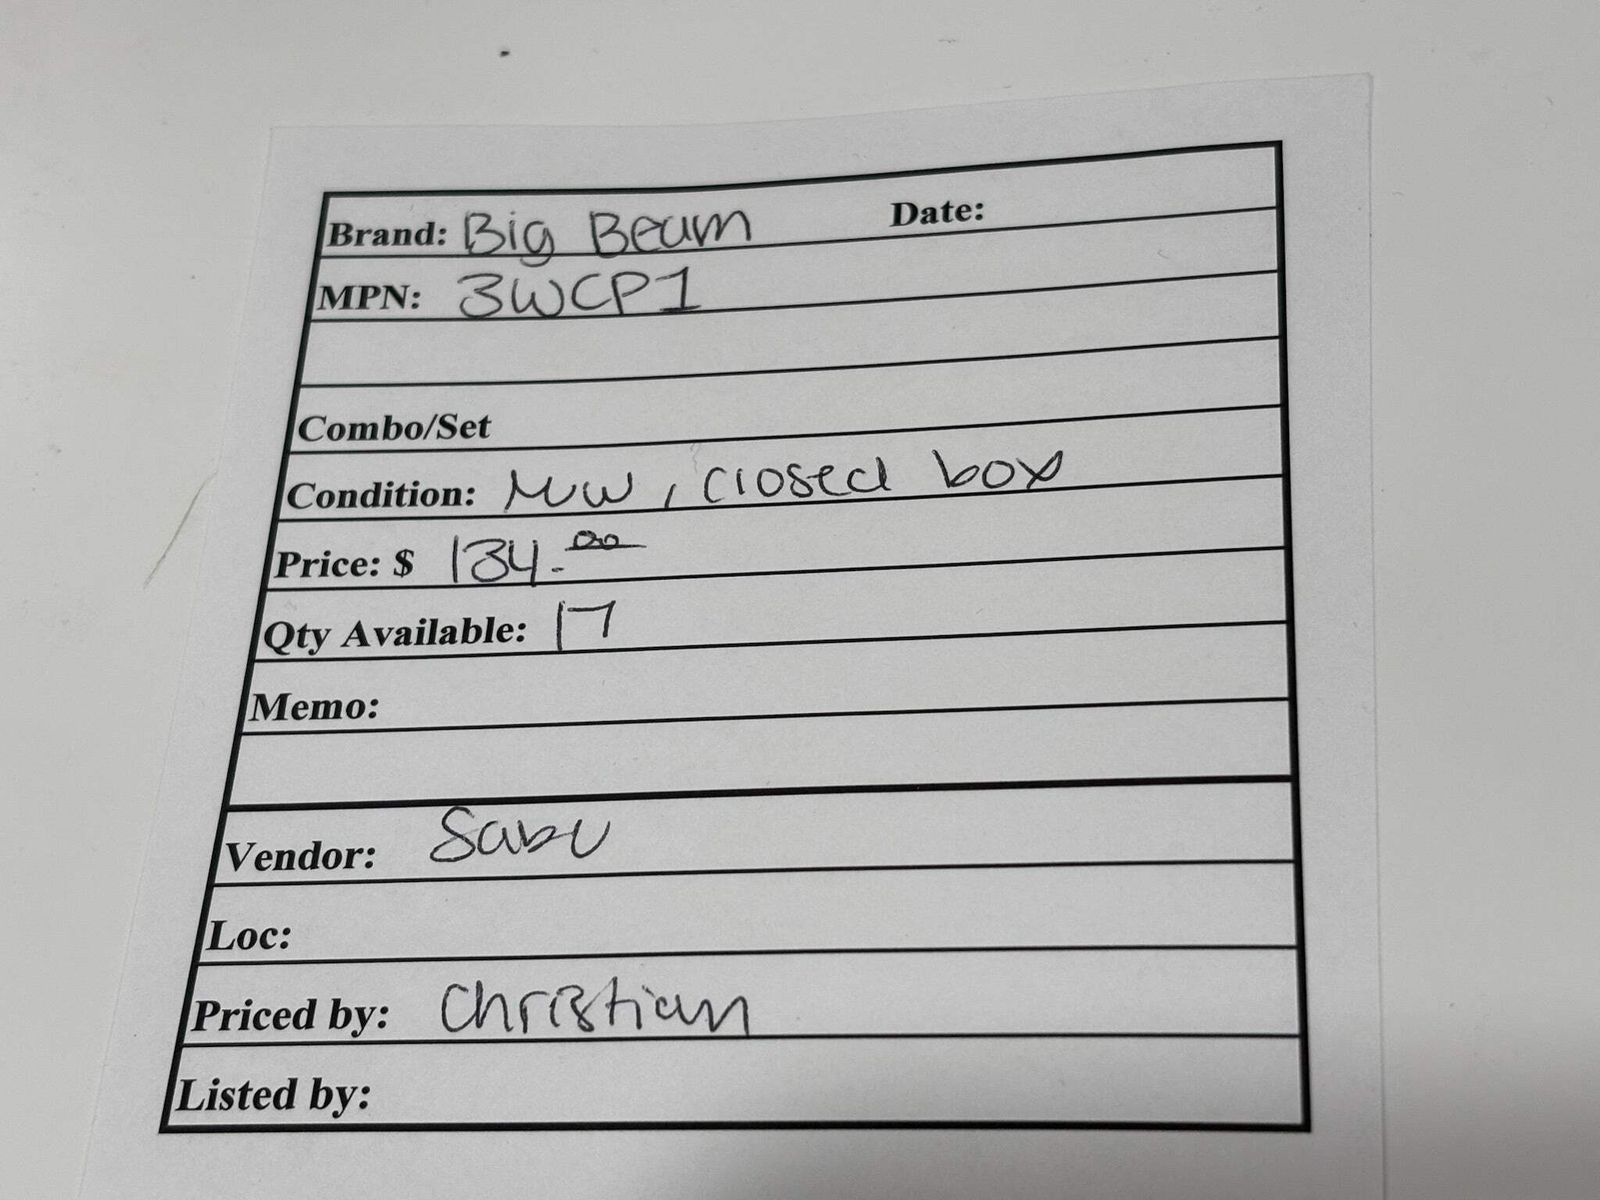 Brand: Big Beam Date:
MPN: 3WCP1
Combo/Set
Condition: New, closed box
Price: $ 134.00
Qty Available: 17
Memo:
Vendor: Sabu
Loc:
Priced by: Christian
Listed by: